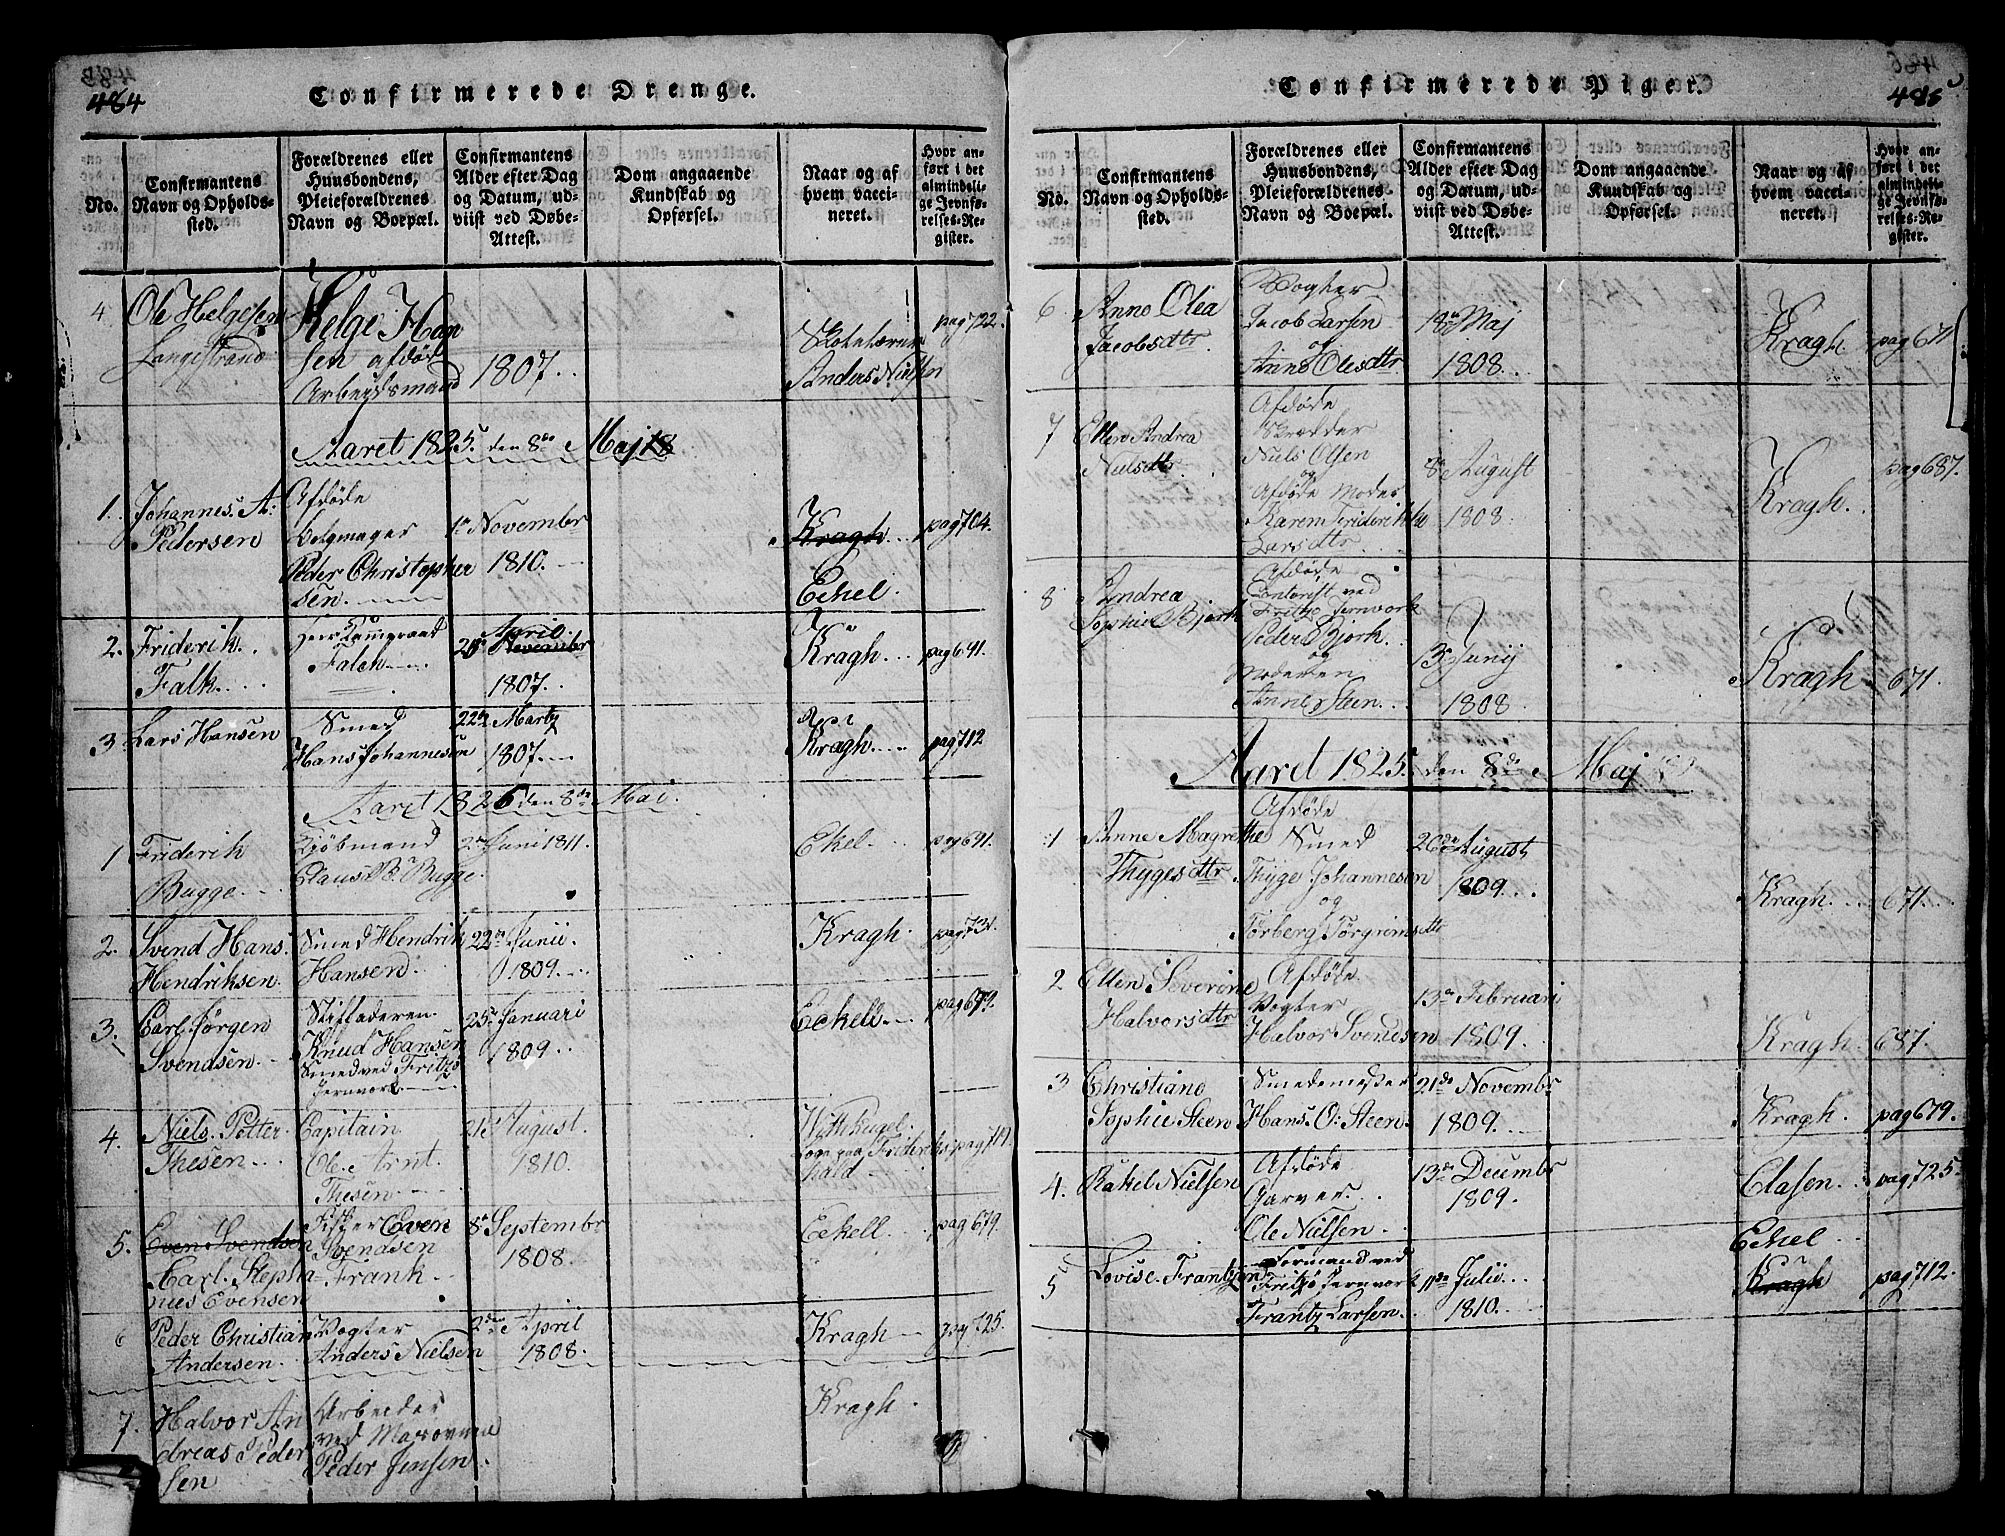 484
Confirmerede Drenge.
No.
Confirmantens Navn og Opholdssted.
Forældrenes eller Huusbondens, Pleieforældrenes Navn og Boepæl.
Confirmantens Alder efter Dag og Datum, udviist ved Døbe-Attest.
Dom angaaende Kundskab og Opførsel.
Naar og af hvem vaccineret.
Hvor anført i det almindelige Jevnførelses-Register.
4
Ole Helgesen
Langestrand
Helge Han
sen afdød
Arbeydsmand
1807.
Anders Nielsen
pag 722.
Aaret 1825 den 8de Maj
1.
Johannes. A:
Pedersen
Afdøde
Peder Christopher
sen.
1te Novembr
1810.
Kragh
Eckel.
pag 704.
2.
Friderik
Falk
Herr Kamraad
Falch
April
Novembr
1807.
Kragh
pag 691.
3
Lars Hansen
Smed
Hans Johannesen
22de Marty
1807.
Kragh
pag 712
Aaret 1826 den 8de Mai.
1
Friderik
Bugge
Kjöbmand
Claus B. Bugge.
2de Juni 1811.
Ekel.
pag 691.
2.
Svend Hans
Hendriksen.
Smed Hendrik
Hansen.
22de Junii
1809.
Kragh.
pag 731.
3.
Carl Jørgen
Svendsen
Stiffaderen
Knud Hansen
Smed ved Fritzø
Jernværk
25de Januari
1809.
Eckell
pag 679.
4.
Niels Petter
Thesen
Capitain
Ole Arnt
Thesen
21de August.
1810.
Fredericks
hald
pag 719.
5.
Even Svendsen
Carl Stepha
nus Evensen
Fisker Even
Svendsen
Frank
8de Septembr
1808.
Eckell.
pag 679.
6
Peder Christian
Andersen.
Vogter
Anders Nielsen
2den April
1808.
Kragh
pag 725.
7.
Halvor An
dreas Peder
sen
Arbeider
ved
Peder Jensen.
Kragh.
Confirmerede Piger.
485
No.
Confirmantens Navn og Opholdssted.
Forældrenes eller Huusbondens, Pleieforældrenes Navn og Boepæl.
Confirmantens Alder efter Dag og Datum, udviist ved Døbe-Attest.
Dom angaaende Kundskab og Opførsel.
Naar og af hvem vaccineret.
Hvor anført i det almindelige Jevnførelses-Register.
6
Anne Olea
Jacobsdtr.
Vogter
Jacob Larsen
og
Anne Olesdtr
18de Maj
1808.
Kragh
pag 671
7
Ellen Andrea
Nielsdtr
Afdøde
Skrædder
Niels Olsen
og
Afdøde Moder
Karen Friderikke
Larsdtr
8de August
1808.
Kragh.
pag 687.
8
Andrea
Sophie Bjørk
Afdøde
Contorist ved
Fritzø Jernværk
Peder Bjørk
og
Moderen
Anne Steen.
13de Junij
1808
Kragh
671.
Aaret 1825 den 8de Maj
1
Anne Magrethe
Thygesdtr
Afdøde
Smed
Thyge Johannesen
og
Torberg Torgrimsdtr
26de August
1809.
Kragh.
671.
2
Ellen Severine
Halvorsdtr
Afdøde
Vogter
Halvor Svendsen
13de Februari
1809.
Kragh.
687.
3
Christiane
Sophie Steen
Smedemester
Hans O: Steen.
21de Novembr
1809.
Kragh.
pag 679.
4.
Rakel Nielsen
Afdøde
Garver
Ole Nielsen.
13de Decembr
1809.
Clasen.
pag 725
5
Lovise Frantzen
Formand ved
Fritzø Jernværk
Frantz Larsen.
11de Julii
1810.
Eckel
Kragh
pag 712.